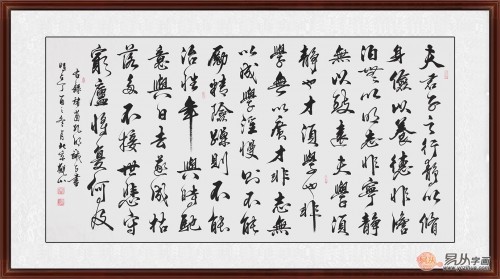 夫君子之行静以修
身儉以養德非澹
泊無以明志非寧静
無以致遠夫學須
静也才須學也非
學無以廣才非志無
以成學淫慢則不能
勵精險躁則不能
治性年與時馳
意與日去遂成枯
落多不接世悲守
窮廬將復何及
諸葛孔明誡子書
時在丁酉之冬月北京觀山
易从字画